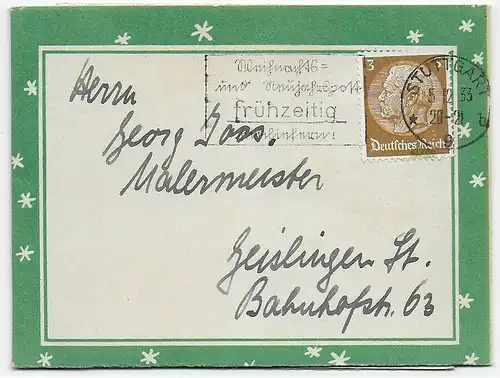 Weihnachts=
und Neujahrspost
frühzeitig
einliefern!
3
Deutsches Reich
STUTTGART
5 12 33
20-21
Herrn
Georg Joos.
Malermeister
Geislingen St.
Bahnhofstr. 63